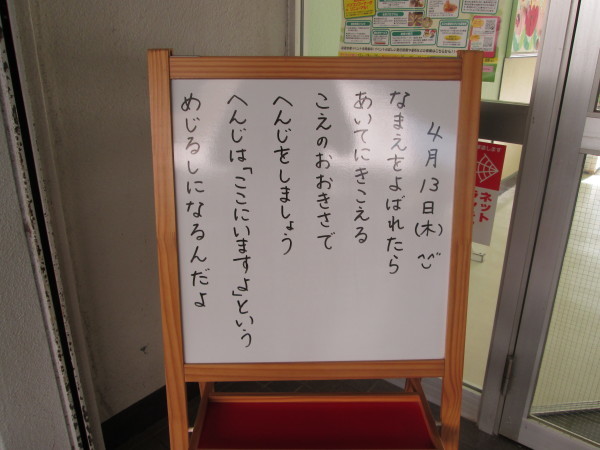 4月13日(木)
なまえをよばれたら
あいてにきこえる
こえのおおきさで
へんじをしましょう
へんじは「ここにいますよ」という
めじるしになるんだよ
ネット